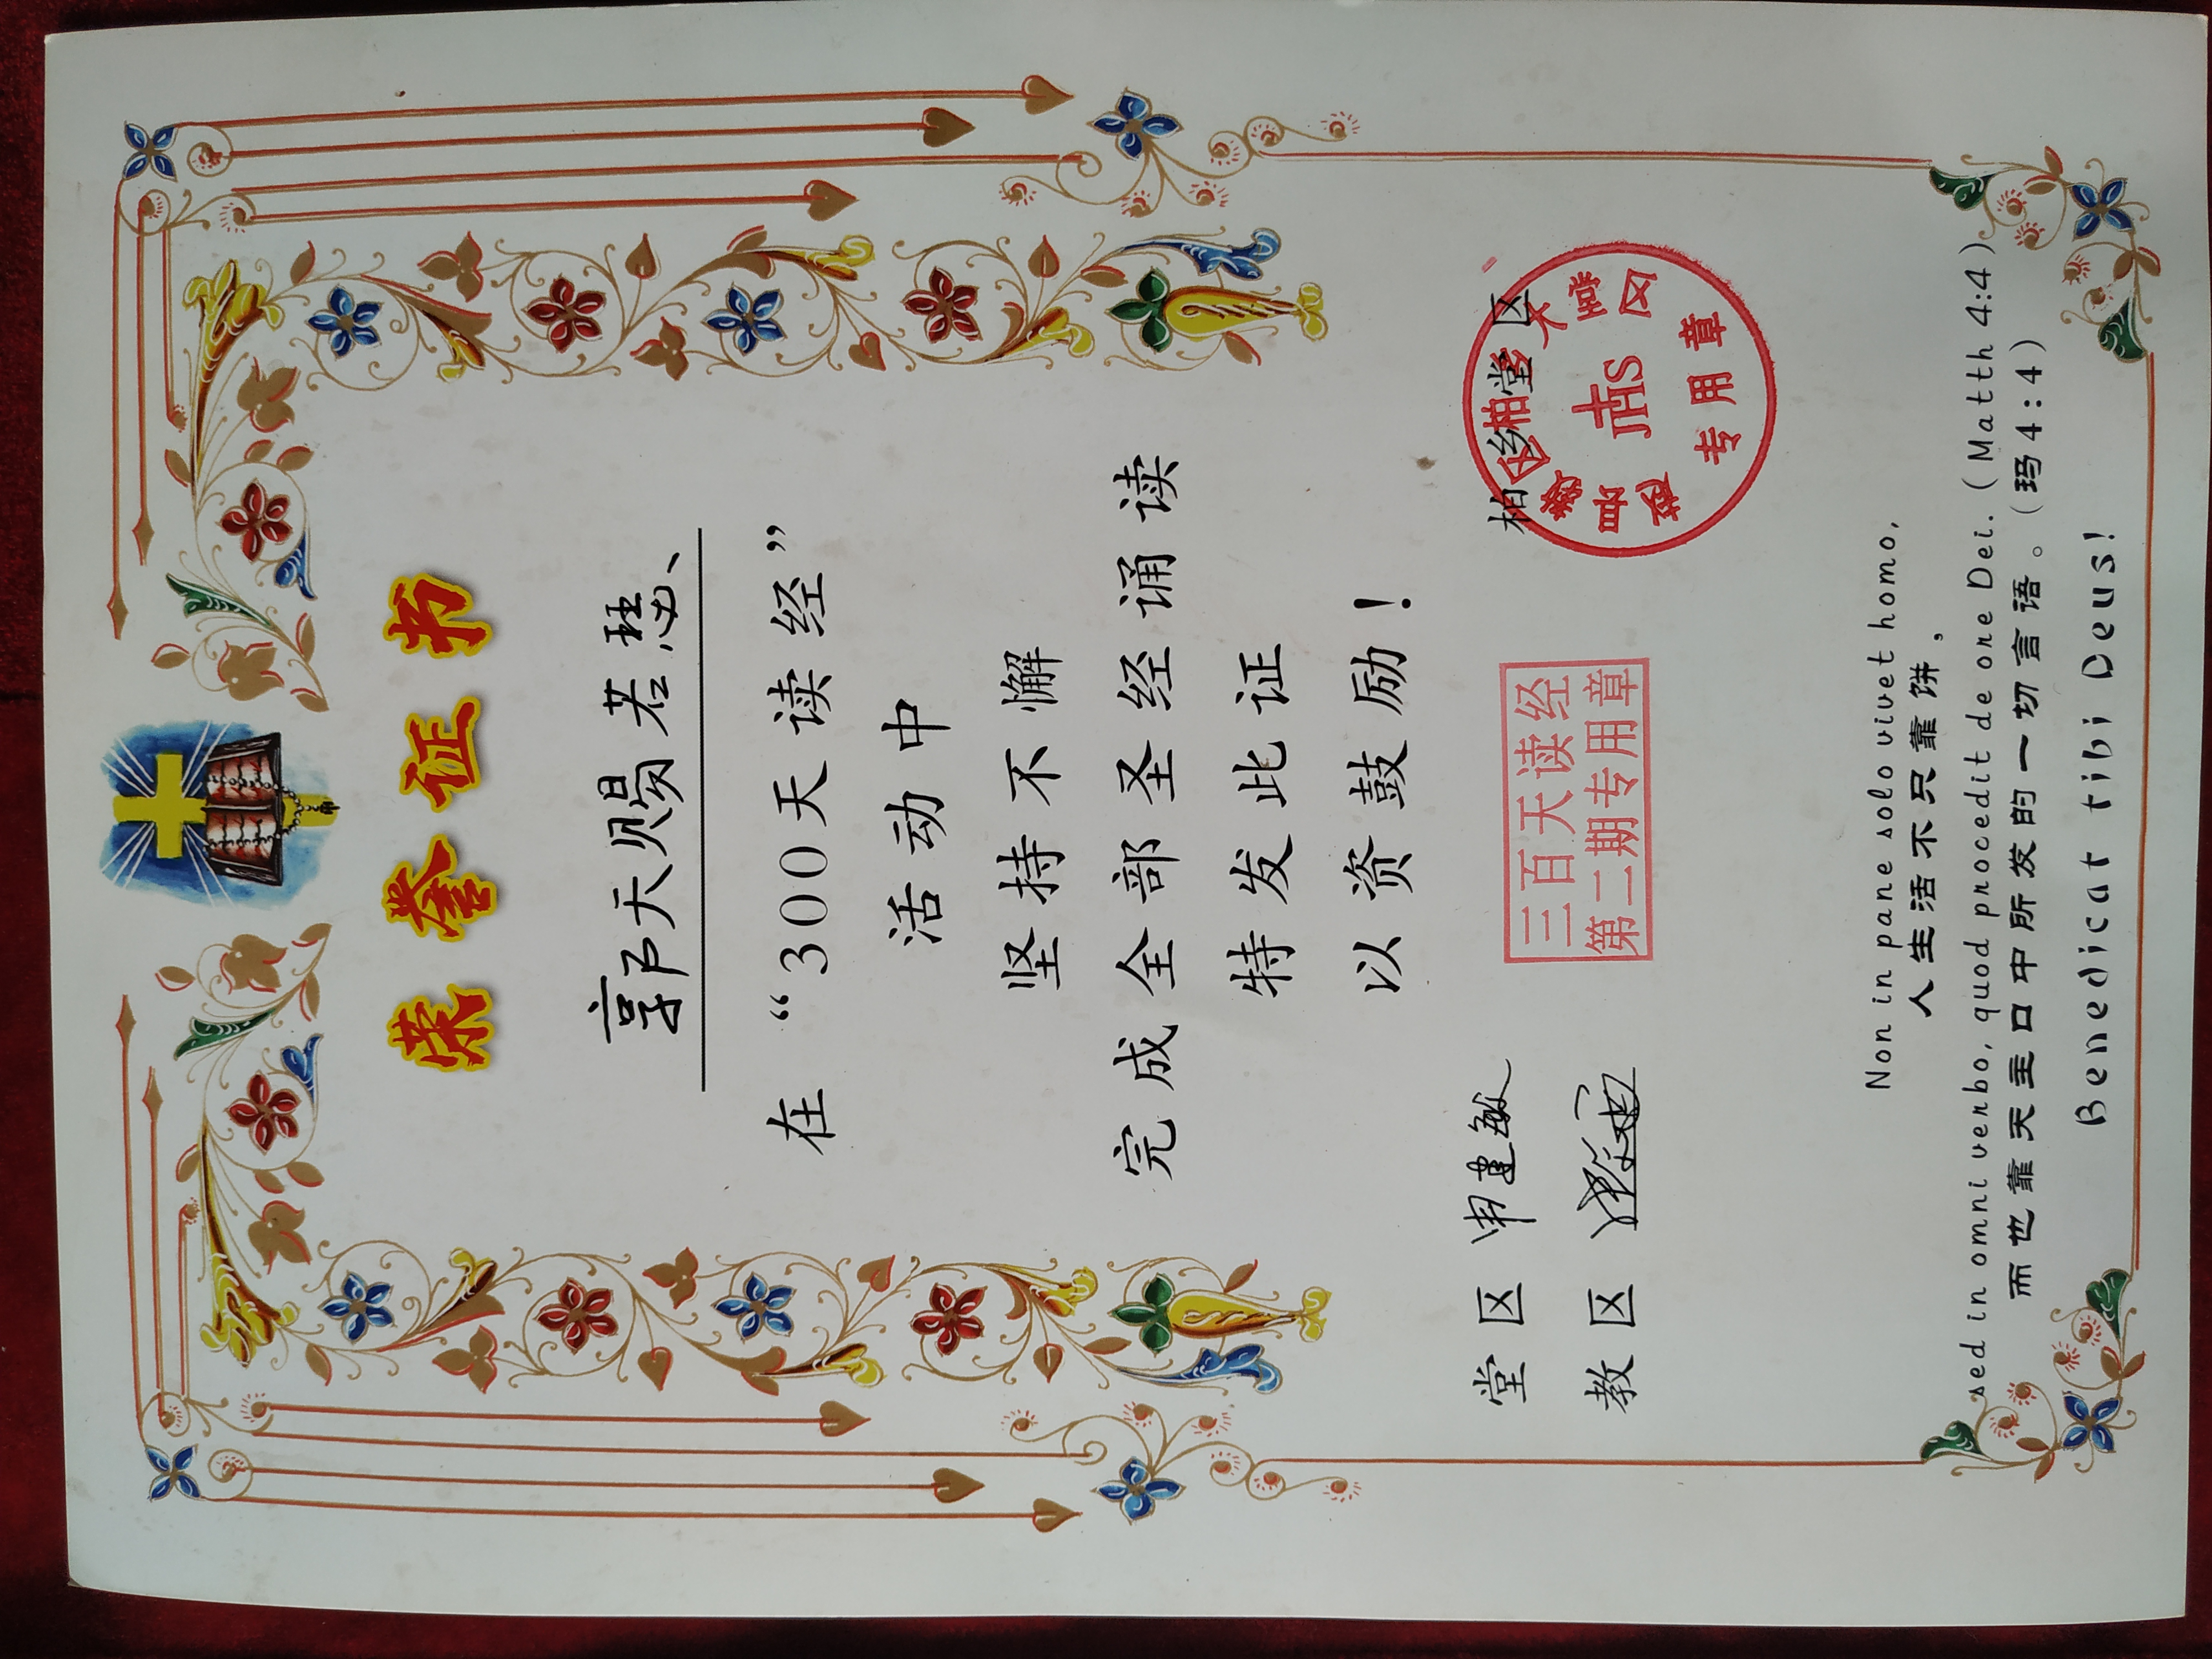 荣誉证书
郭天赐若瑟
在“300天读经”
活动中
坚持不懈
完成全部圣经诵读
特发此证
以资鼓励！
堂区 申建敏
柏乡堂区
教区
三百天读经
第二期专用章
JHS
专用章
Non in pane solo vivet homo,
人生活不只靠饼，
sed in omni verbo, quod procedit de ore Dei. (Matth 4:4)
而也靠天主口中所发的一切言语。(玛4:4)
Benedicat tibi Deus!